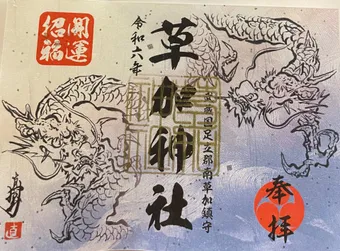 開運
招福
奉拝
武蔵国足立郡南草加鎮守
草加神社
令和六年
直